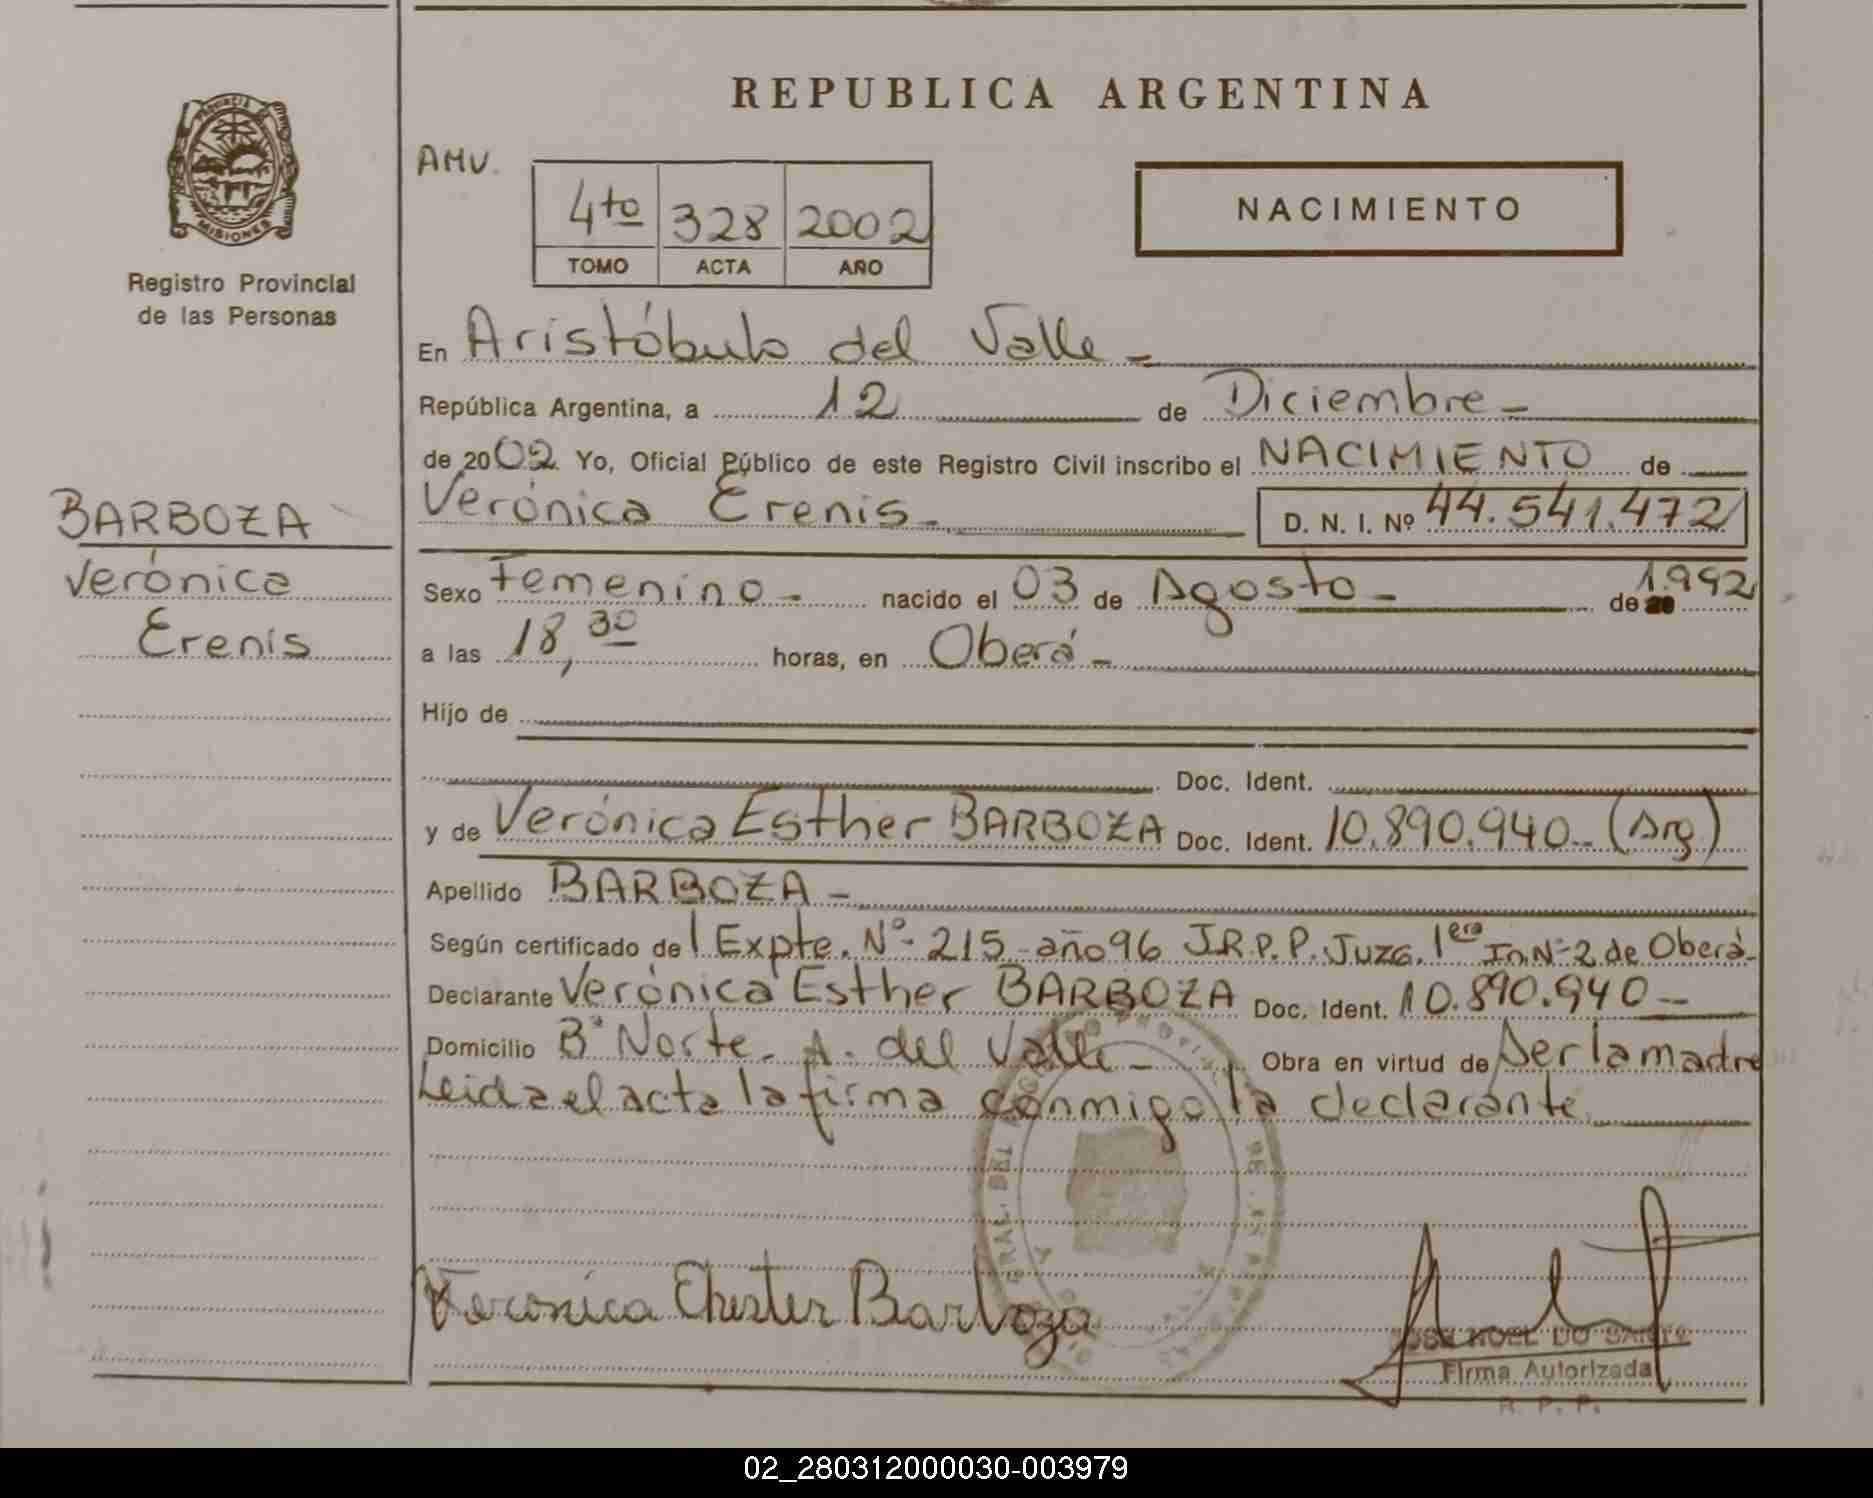 REPUBLICA ARGENTINA
PROVINCIA
MISIONES
Registro Provincial
de las Personas
AMV.
4to 328 2002
TOMO ACTA AÑO
NACIMIENTO
En Aristóbulo del Valle -
República Argentina, a 12 de Diciembre -
de 2002. Yo, Oficial Público de este Registro Civil inscribo el NACIMIENTO de
BARBOZA
Verónica
Erenis
Verónica Erenis - D. N. I. Nº 44.541.472
Sexo Femenino - nacido el 03 de Agosto - de 1992
a las 18,30 horas, en Oberá -
Hijo de
Doc. Ident.
y de Verónica Esther BARBOZA Doc. Ident. 10.890.940 - (Arg)
Apellido BARBOZA -
Según certificado de Expte. Nº 215 - año 96 J.R.P.P. Juzg. 1era In. Nº 2 de Oberá -
Declarante Verónica Esther BARBOZA Doc. Ident. 10.890.940 -
Domicilio Bº Norte - A. del Valle - Obra en virtud de ser la madre
Leida el acta la firma conmigo la declarante.
Veronica Ehester Barboza
JOSE NOEL DO SANTS
Firma Autorizada
R. P. P.
02_280312000030-003979